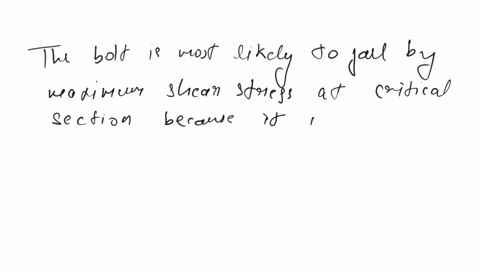 The bolt is most likely to fail by
maximum shear stress at critical
section because it